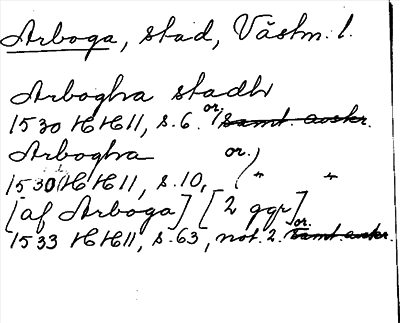 Arboga, stad, Västm. l.
Arbogha stadh
1530 HH II, s. 6. or. samt. avskr.
Arbogha or.
1530 HH II, s. 10, ( " "
[af Arboga] [2 ggr]
1533 HH II, s. 63, not. 2. or. samt. avskr.